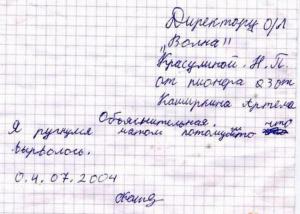 Директору о/л
"Волна"
Красумкой. Н.П.
от пионера 23 от
Каширкина Артёма
Объяснительная.
Я ругнулся матом потомушто что
вырволось.
0.4.07.2004